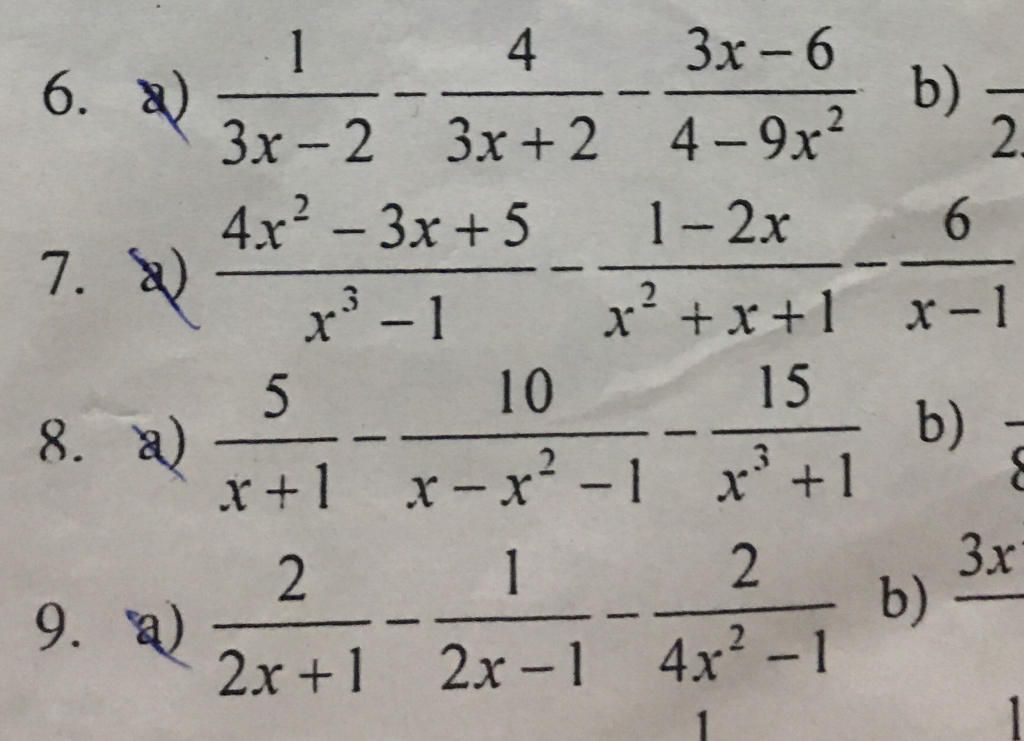 6. a) \frac{1}{3x-2} - \frac{4}{3x+2} - \frac{3x-6}{4-9x^2} b) 2
7. a) \frac{4x^2-3x+5}{x^3-1} - \frac{1-2x}{x^2+x+1} - \frac{6}{x-1}
8. a) \frac{5}{x+1} - \frac{10}{x-x^2-1} - \frac{15}{x^3+1} b)
9. a) \frac{2}{2x+1} - \frac{1}{2x-1} - \frac{2}{4x^2-1} b) 3x